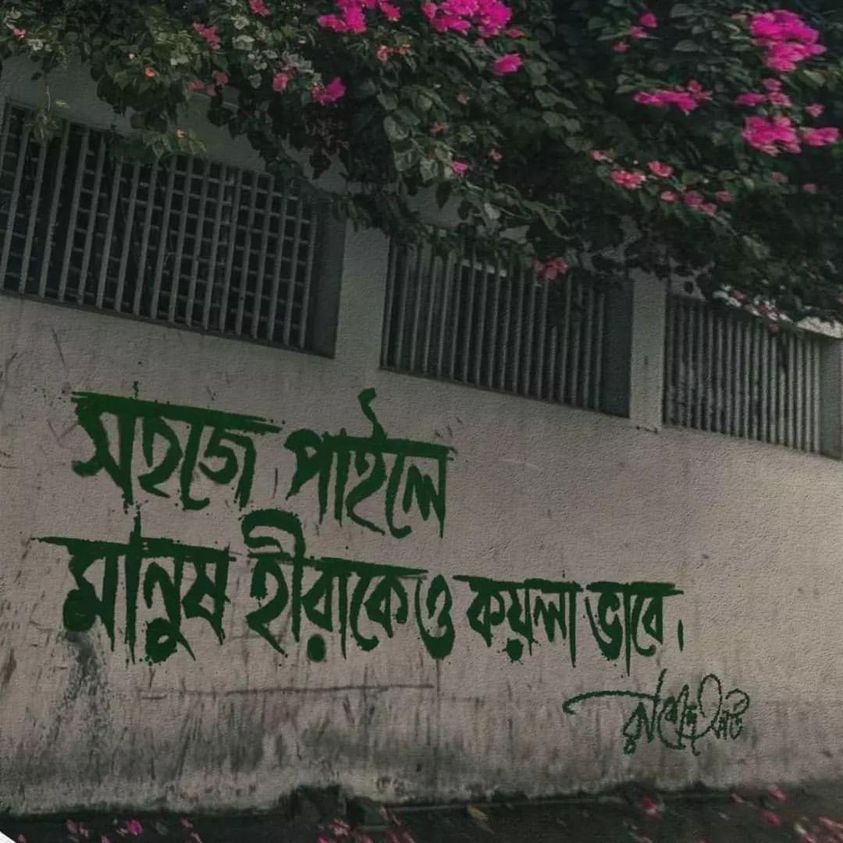 সহজে পাইলে
মানুষ হীরাকেও কয়লা ভাবে।